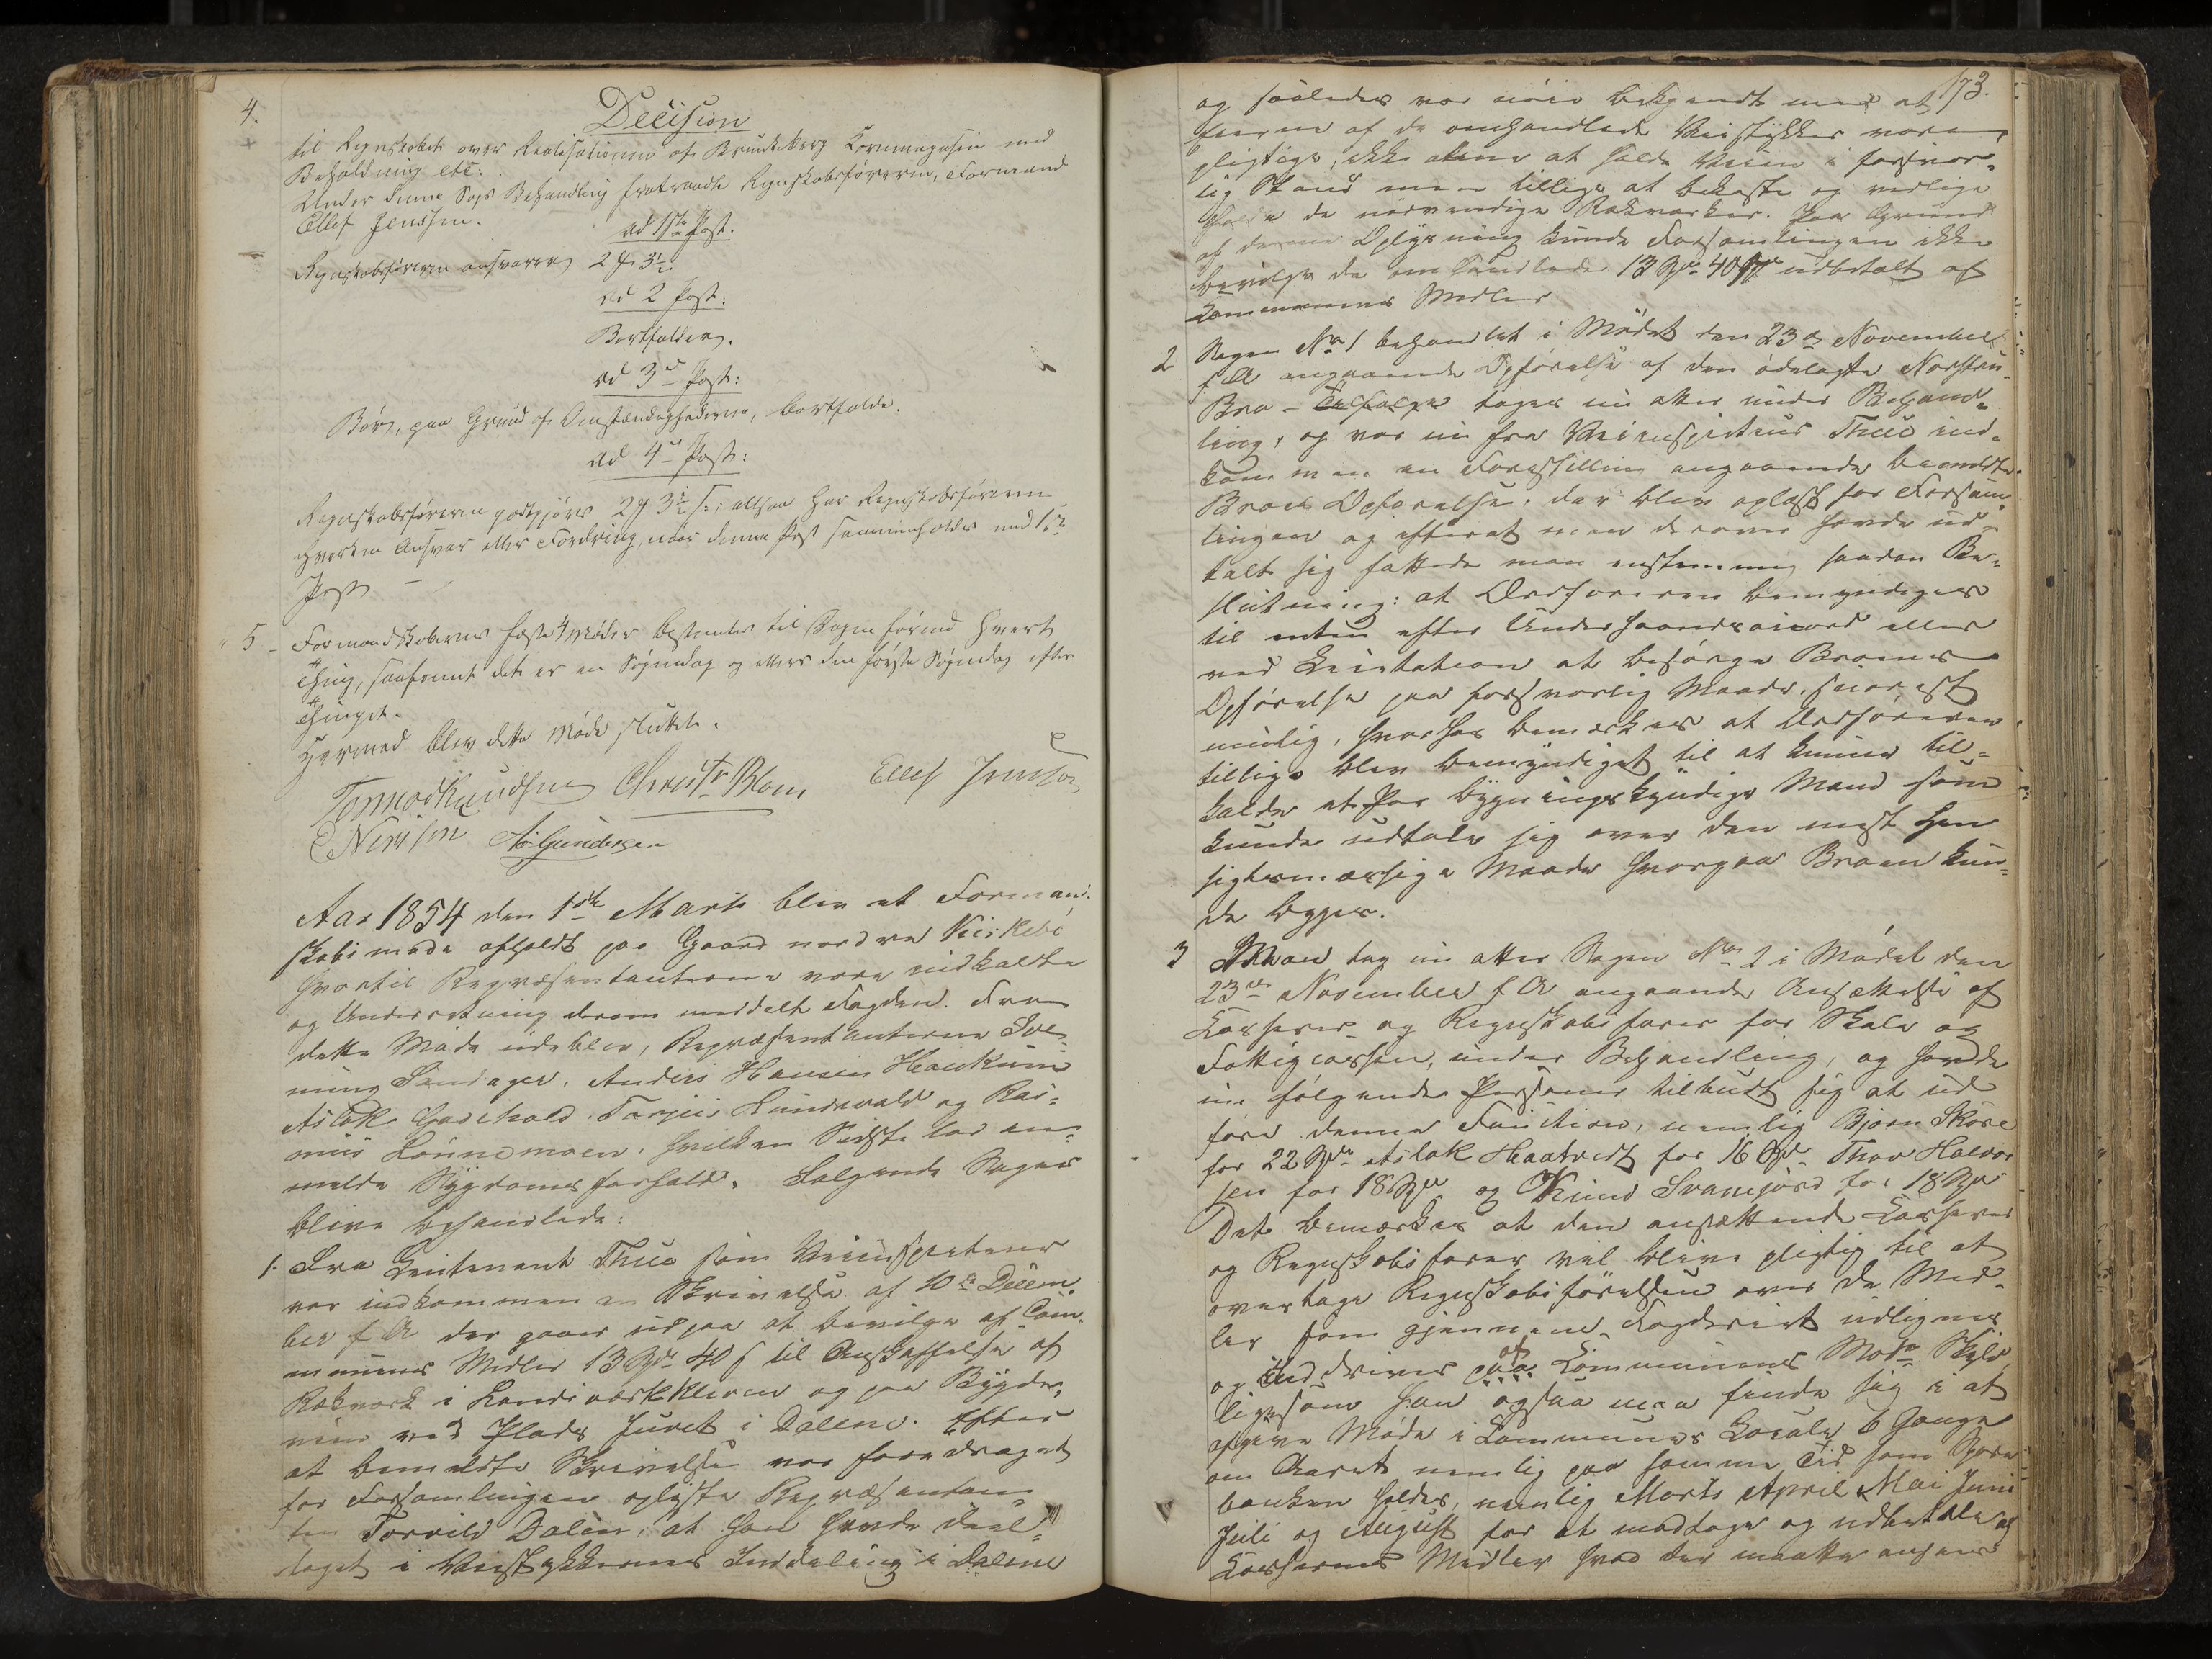 4.
Decision
til Regnskabet over Realisationen af Brunkeberg Kornmagasin med
Beholdning etc:
Under denne Sags Behandling fratraadte Regnskabsføreren, Formand
Ellef Jenssen.
ad 1ste Post.
Regnskabsføreren ansvarer 2 3½
ad 2 Post:
Bortfalder.
ad 3die Post:
Bør, paa Grund af Omstændighederne, bortfalde.
ad 4de Post:
Regnskabsføreren godtgjøres 2 3½ s: altsaa har Regnskabsføreren
hverken Ansvar eller Fordring, naar denne Post sammenholdes med 1ste
Post –
5 – Formandskabernes faste 4 Møder bestemtes til Dagen førend hvert
Thing, saafremt dette er en Søgnedag og ellers den første Søgnedag efter
Thinget.
Hermed blev dette Møde sluttet.
Tormod Knudsen Christn Blom Ellef Jenssen
Nirisen A: Gundersen
Aar 1854 den 1ste Marts blev et Formand-
skabsmøde afholdt paa Gaard nordre
hvortil Repræsentanterne vare indkaldte
og Underretning derom meddelt Fogden. Fra
dette Møde udeblev, Repræsentanterne Sve-
nung Sundager, Anders Hansen Haukum
Aslak Torjus Hundevald og Ras-
mus Lønnemoen, hvilken Sidste lod an-
melde Sygdomsforfald. Følgende Sager
bleve behandlede:
1. Fra Leutenant Thue som Veiinspecteur
var indkommen en Skrivelse af 10de Decem-
ber f A der gaaer ud paa at bevilge af Com-
munens Midler 13 Spd 40 s til Anskaffelse af
Rækværk i og paa Bygde-
veien ved Pladsen Juvet i Dalene. Efter
at bemeldte Skrivelse var foredraget
for Forsamlingen oplyste Repræsentan-
ten Torvild Dalen, at han havde deel-
taget i Veistykkernes Inddeling i Dalene
173.
og saaledes var nøie bekjendt med at
Eierne af de omhandlede Veistykker vare
pligtige, ikke alene at holde Veien i forsvar-
lig Stand men tillige at bekoste og vedlige
holde de nødvendige Rækværker. Paa Grund
af denne Oplysning kunde Forsamlingen ikke
bevilge de omhandlede 13 Spd 40 s udbetalt af
Communens Midler
2 Sagen No 1 behandlet i Mødet den 23de November
f A angaaende Opførelse af den ødelagte
Bro – toges nu atter under Behand-
ling, og var nu fra Veiinspecteur Thue ind-
kommen en Forestilling angaaende bemeldte
Broes Opførelse, der blev oplæst for Forsam-
lingen og efterat man derover havde ud-
talt sig fattede man enstemmig saadan Be-
slutning: at Ordføreren bemyndiges
til enten efter Underhaandsaccord eller
ved Licitation at besørge Broens
Opførelse paa forsvarlig Maade, snarest
mulig, hvorhos bemærkes at Ordføreren
tillige blev bemyndiget til at kunne til-
kalde et Par bygningskyndige Mænd som
kunde udtale sig over den mest hen
sigtsmæssige Maade hvorpaa Broen kun-
de bygges.
3 Man tog nu atter Sagen No 2 i Mødet den
23de November f A angaaende Ansættelse af
Casserer og Regnskabsfører for Skole og
Fattigcassen, under Behandling, og havde
nu følgende Personer tilbudt sig at ud
føre denne Function, nemlig Bjørn Skore
for 22 Spd Aslak Haatvedt for 16 Spd Thor Halvor
sen for 18 Spd og Knud Svanejord for 18 Spd
Det bemærkes at den ansættende Casserer
og Regnskabsfører vil blive pligtig til at
overtage Regnskabsførelsen over de Mid-
ler som gjennem Fogderiet udlignes
og inddrives paa af Communens Matr Skyld,
ligesom han ogsaa maa finde sig i at
afgive Møde i Communens Locale 6 Gange
om Aaret nemlig paa samme Tid som Spare
banken holdes, nemlig Marts April Mai Juni
Juli og August for at modtage og udbetale af
Cassernes Midler hvad der maatte